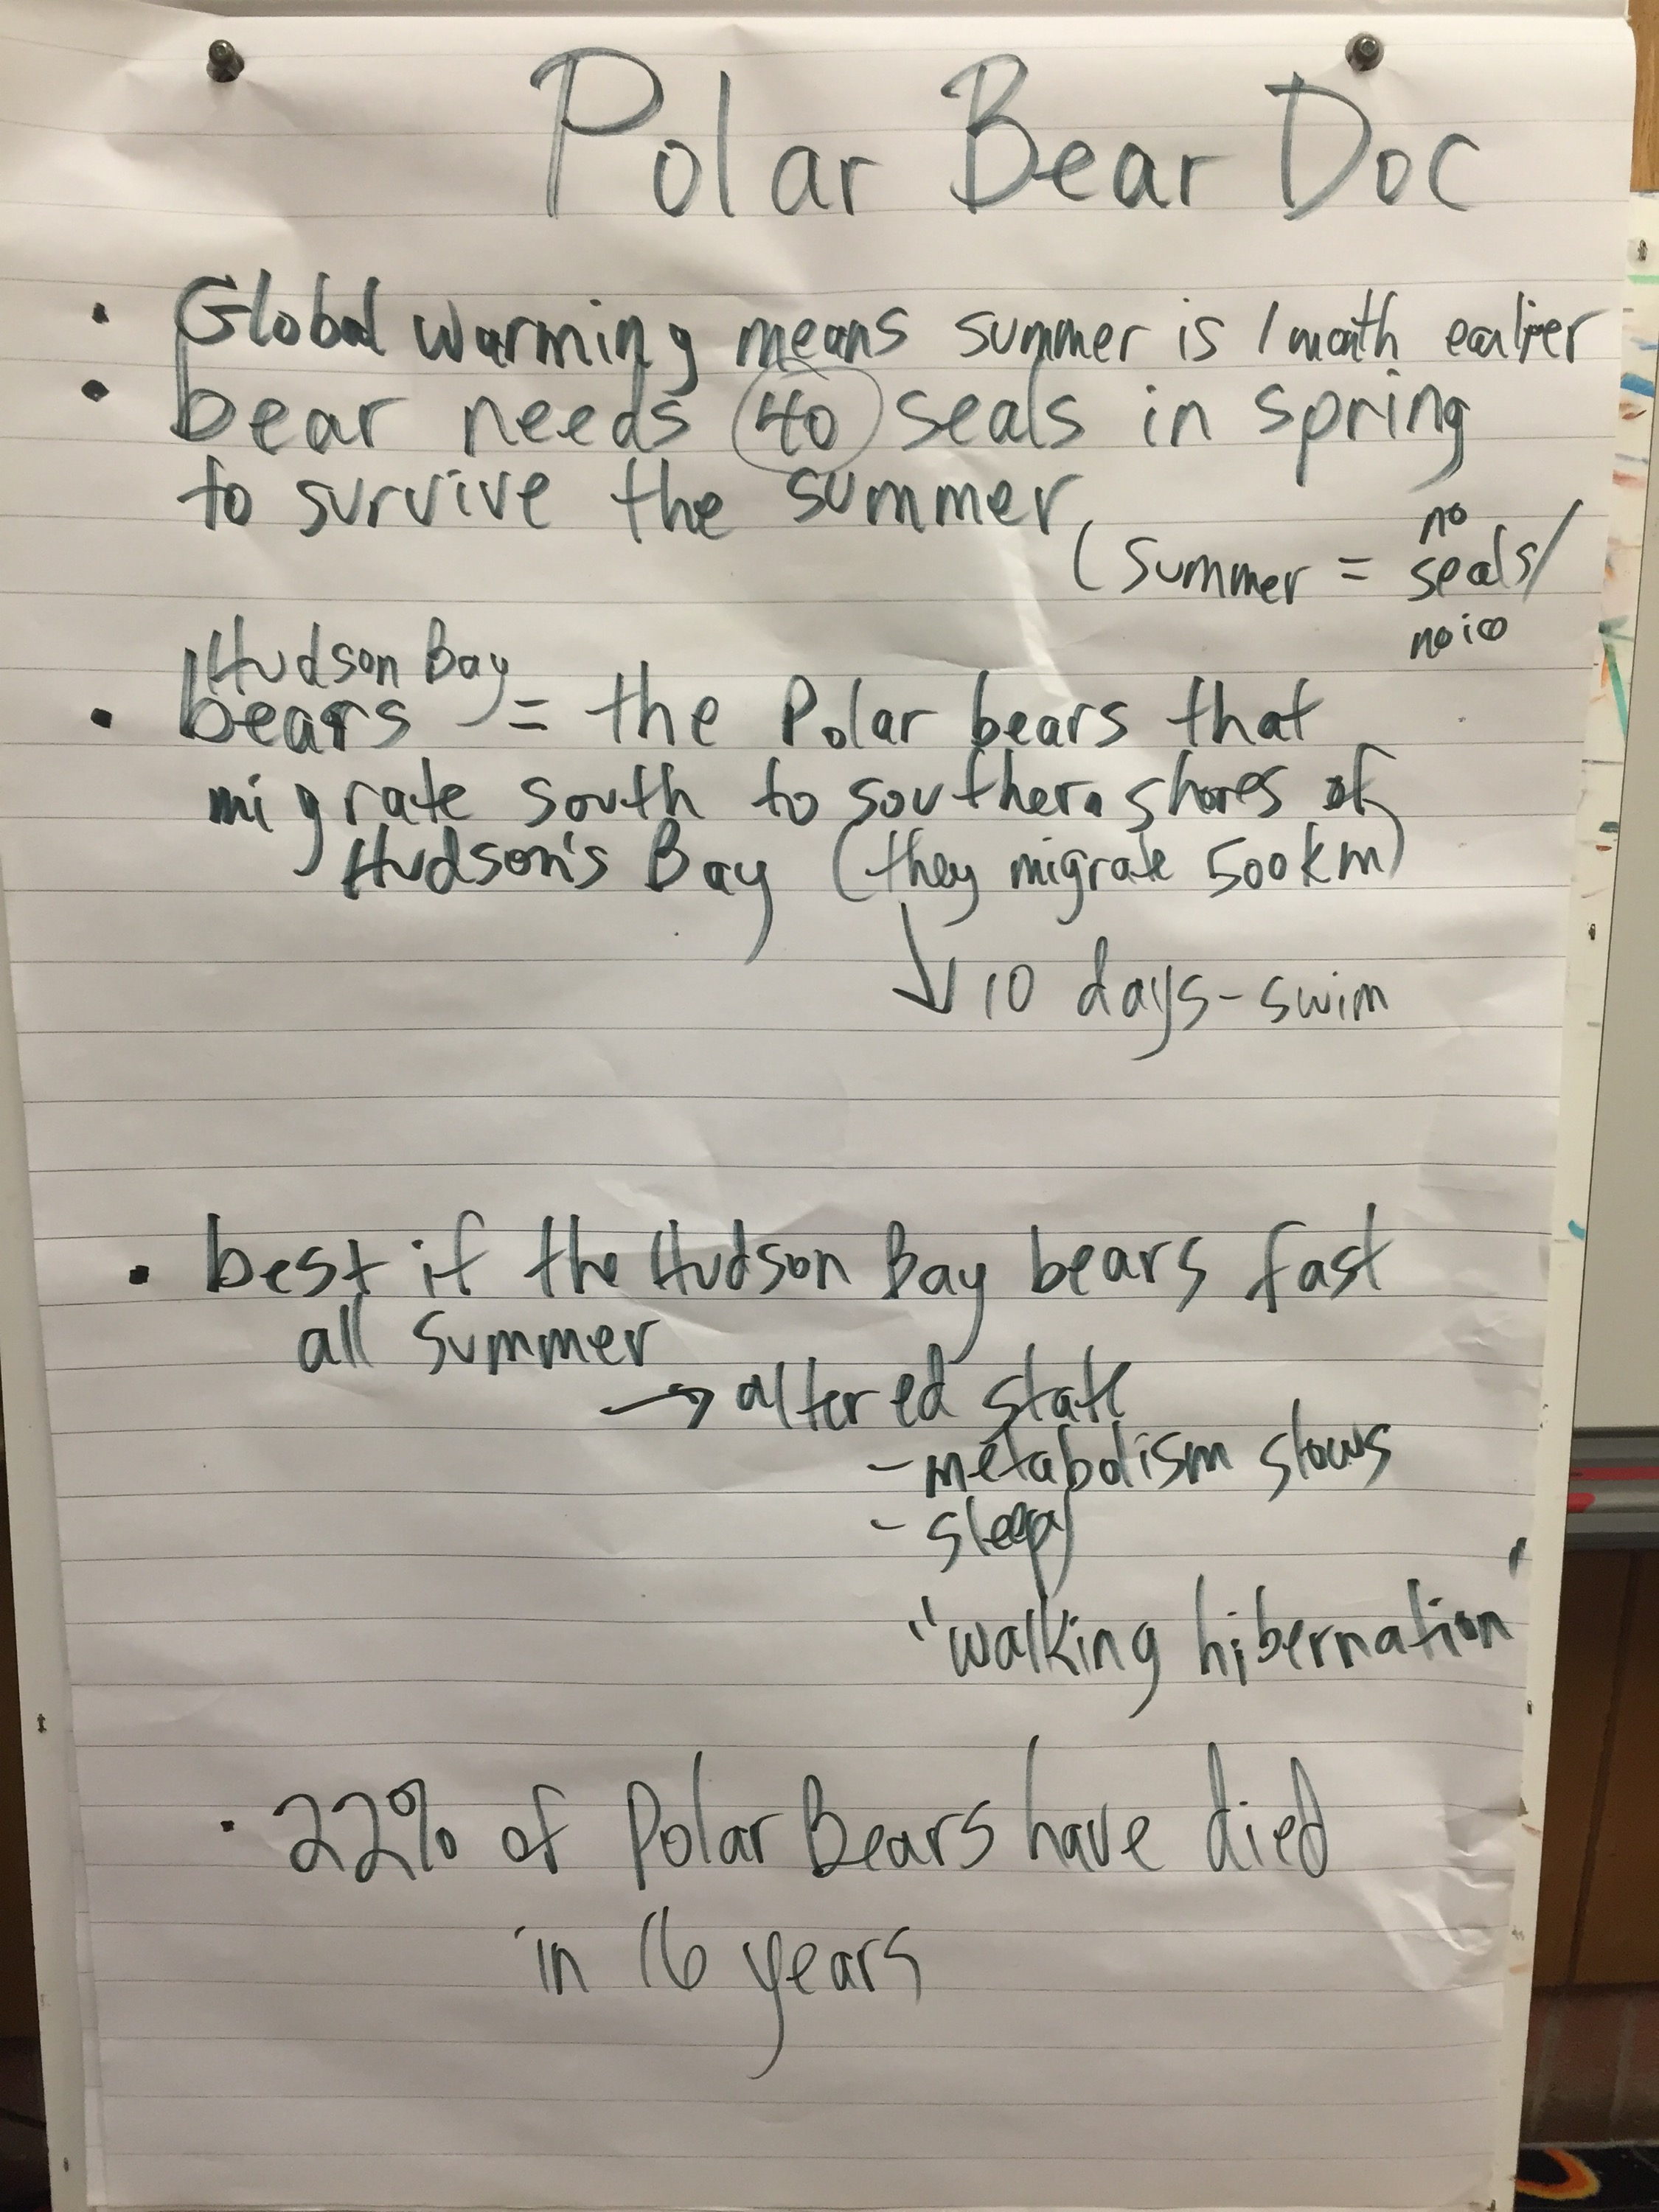 Polar Bear Doc
• Global warming means summer is 1 month earlier
• bear needs 40 seals in spring
to survive the summer
(summer = no seals/
no ice
Hudson Bay
• bears = the Polar bears that
migrate south to southern shores of
Hudson's Bay (they migrate 500km)
↓ 10 days-swim
• best if the Hudson Bay bears fast
all summer
→ altered state
- metabolism slows
- sleepy
"walking hibernation"
• 22% of Polar Bears have died
in 16 years